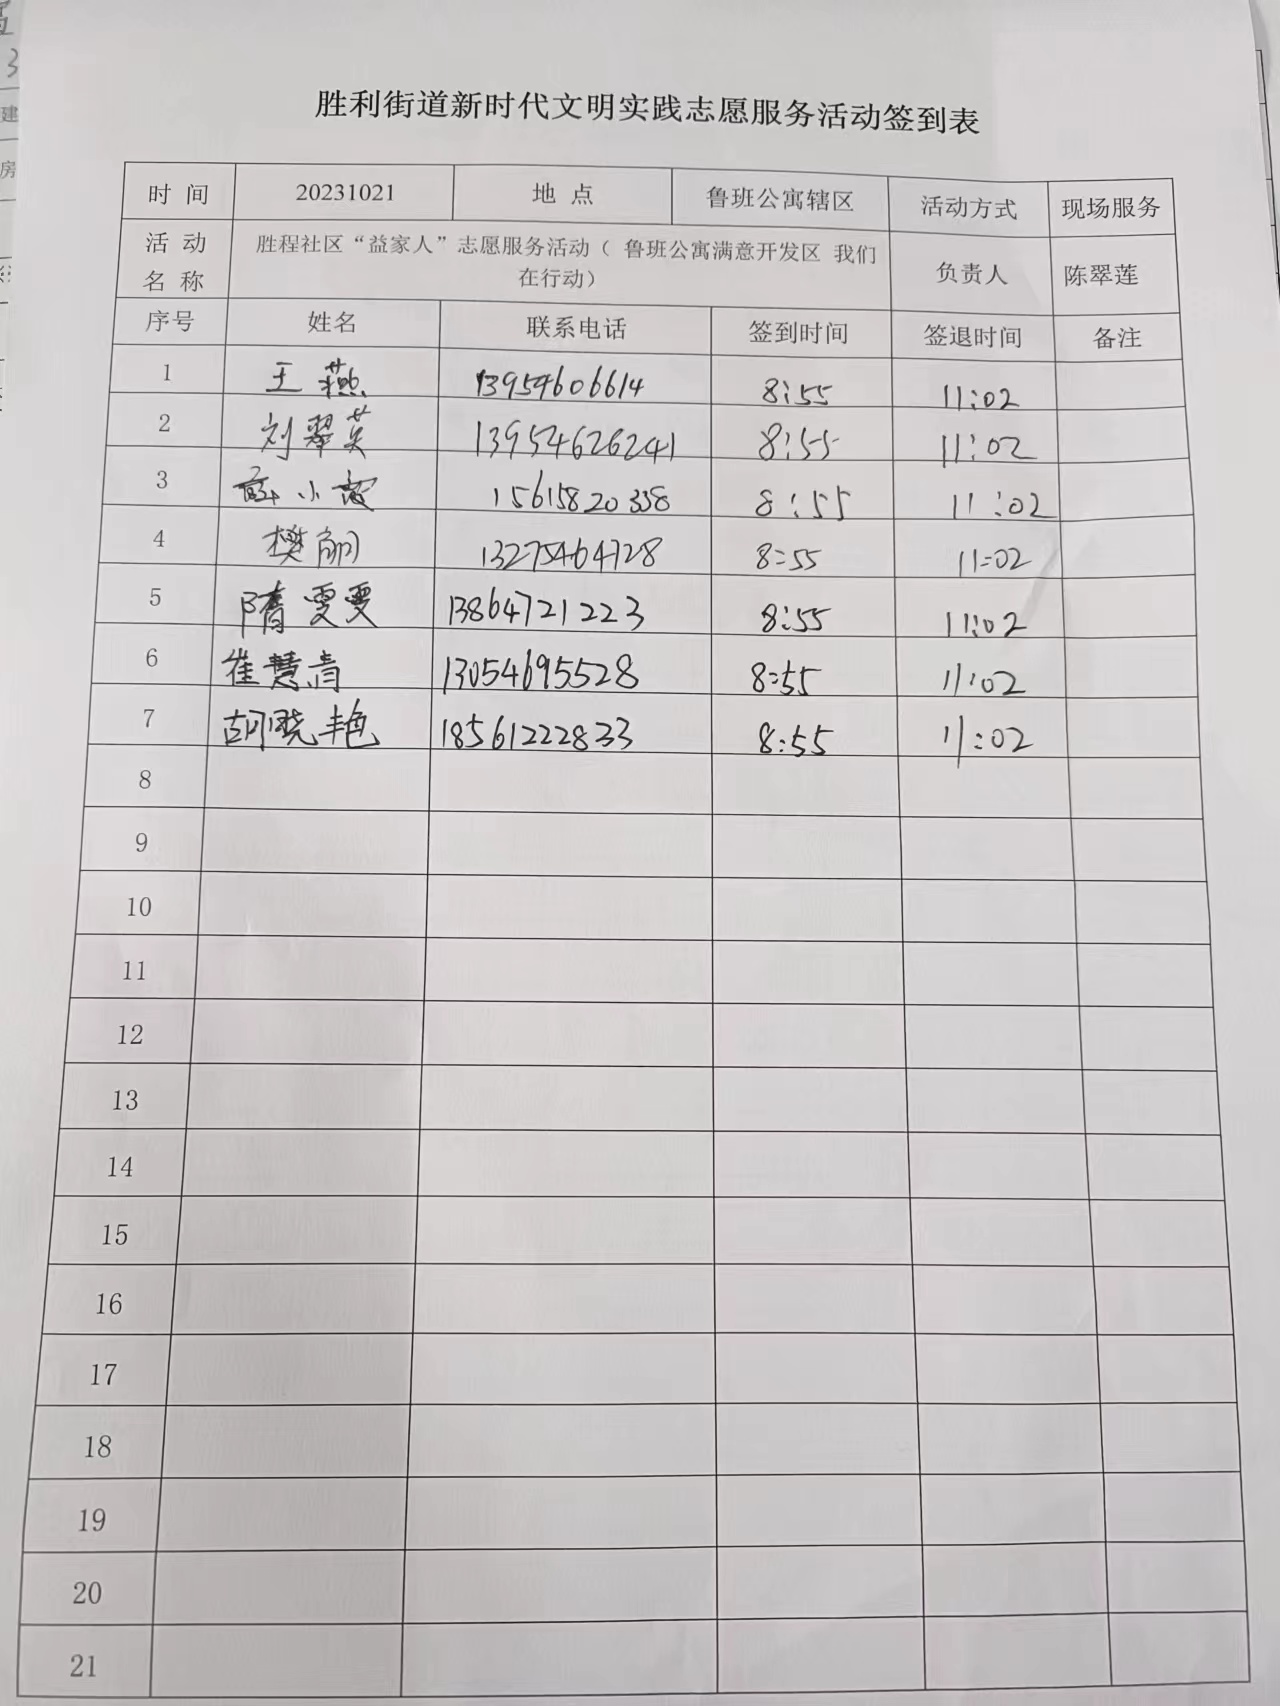 胜利街道新时代文明实践志愿服务活动签到表
时 间 20231021 地 点 鲁班公寓辖区 活动方式 现场服务
活 动 名 称 胜程社区“益家人”志愿服务活动（ 鲁班公寓满意开发区 我们
在行动） 负责人 陈翠莲
序号 姓名 联系电话 签到时间 签退时间 备注
1 王燕 13954606614 8:55 11:02
2 刘翠英 13954626241 8:55 11:02
3 小 15615820338 8:55 11:02
4 樊丽 13275464728 8:55 11:02
5 隋雯雯 13864721223 8:55 11:02
6 崔慧青 13054695528 8:55 11:02
7 胡晓艳 18561222833 8:55 11:02
8
9
10
11
12
13
14
15
16
17
18
19
20
21